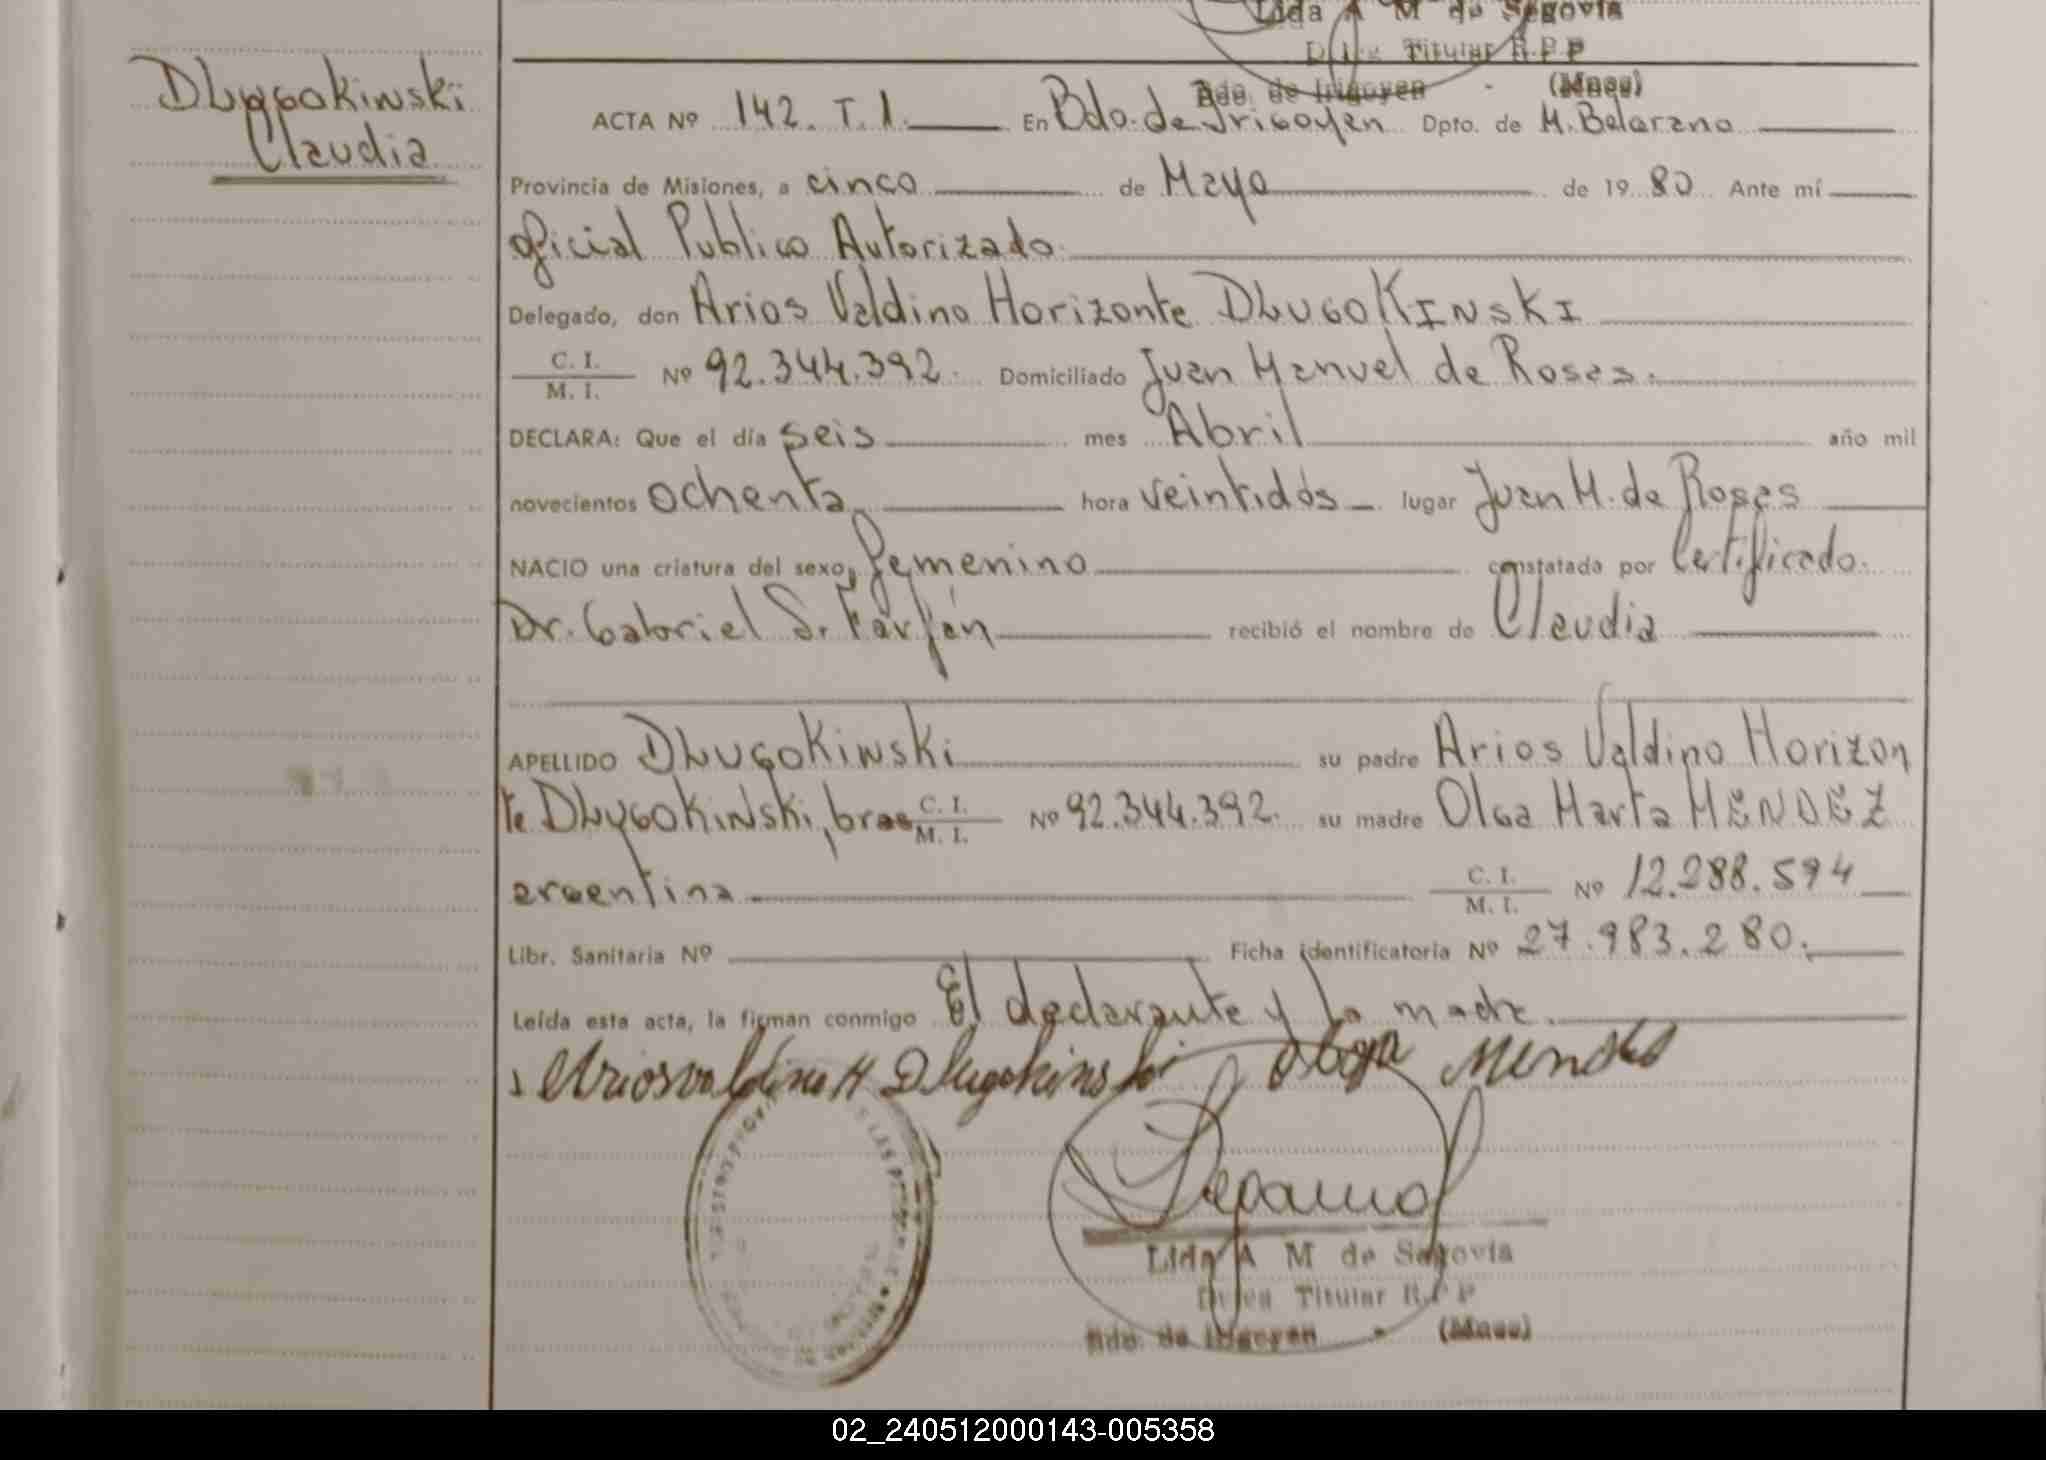 Lida A M de Segovia
Titular R.P.P
Bdo. de Irigoyen - (Mnes)
Dlugokinski
Claudia
ACTA Nº 142. T. 1. En Bdo. de Irigoyen Dpto. de M. Belgrano
Provincia de Misiones, a cinco de Mayo de 1980 Ante mí
Oficial Publico Autorizado.
Delegado, don Arios Valdino Horizonte DLUGOKINSKI
C. I.
M. I. Nº 92.344.392. Domiciliado Juan Manuel de Rosas.
DECLARA: Que el día seis mes Abril año mil
novecientos ochenta hora veintidós lugar Juan M. de Rosas
NACIO una criatura del sexo, femenino constatada por Certificado.
Dr. Gabriel S. Farfán recibió el nombre de Claudia
APELLIDO Dlugokinski su padre Arios Valdino Horizon
te Dlugokinski, bras C. I.
M. I. Nº 92.344.392. su madre Olga Marta MENDEZ
argentina C. I.
M. I. Nº 12.288.594
Libr. Sanitaria Nº Ficha identificatoria Nº 27.983.280.
Leída esta acta, la firman conmigo El declarante y la madre.
Ariosvaldino H Dlugokinski Olga Mendes
Lida A M de Segovia
Titular R.P.P
Bdo. de Irigoyen - (Mnes)
02_240512000143-005358